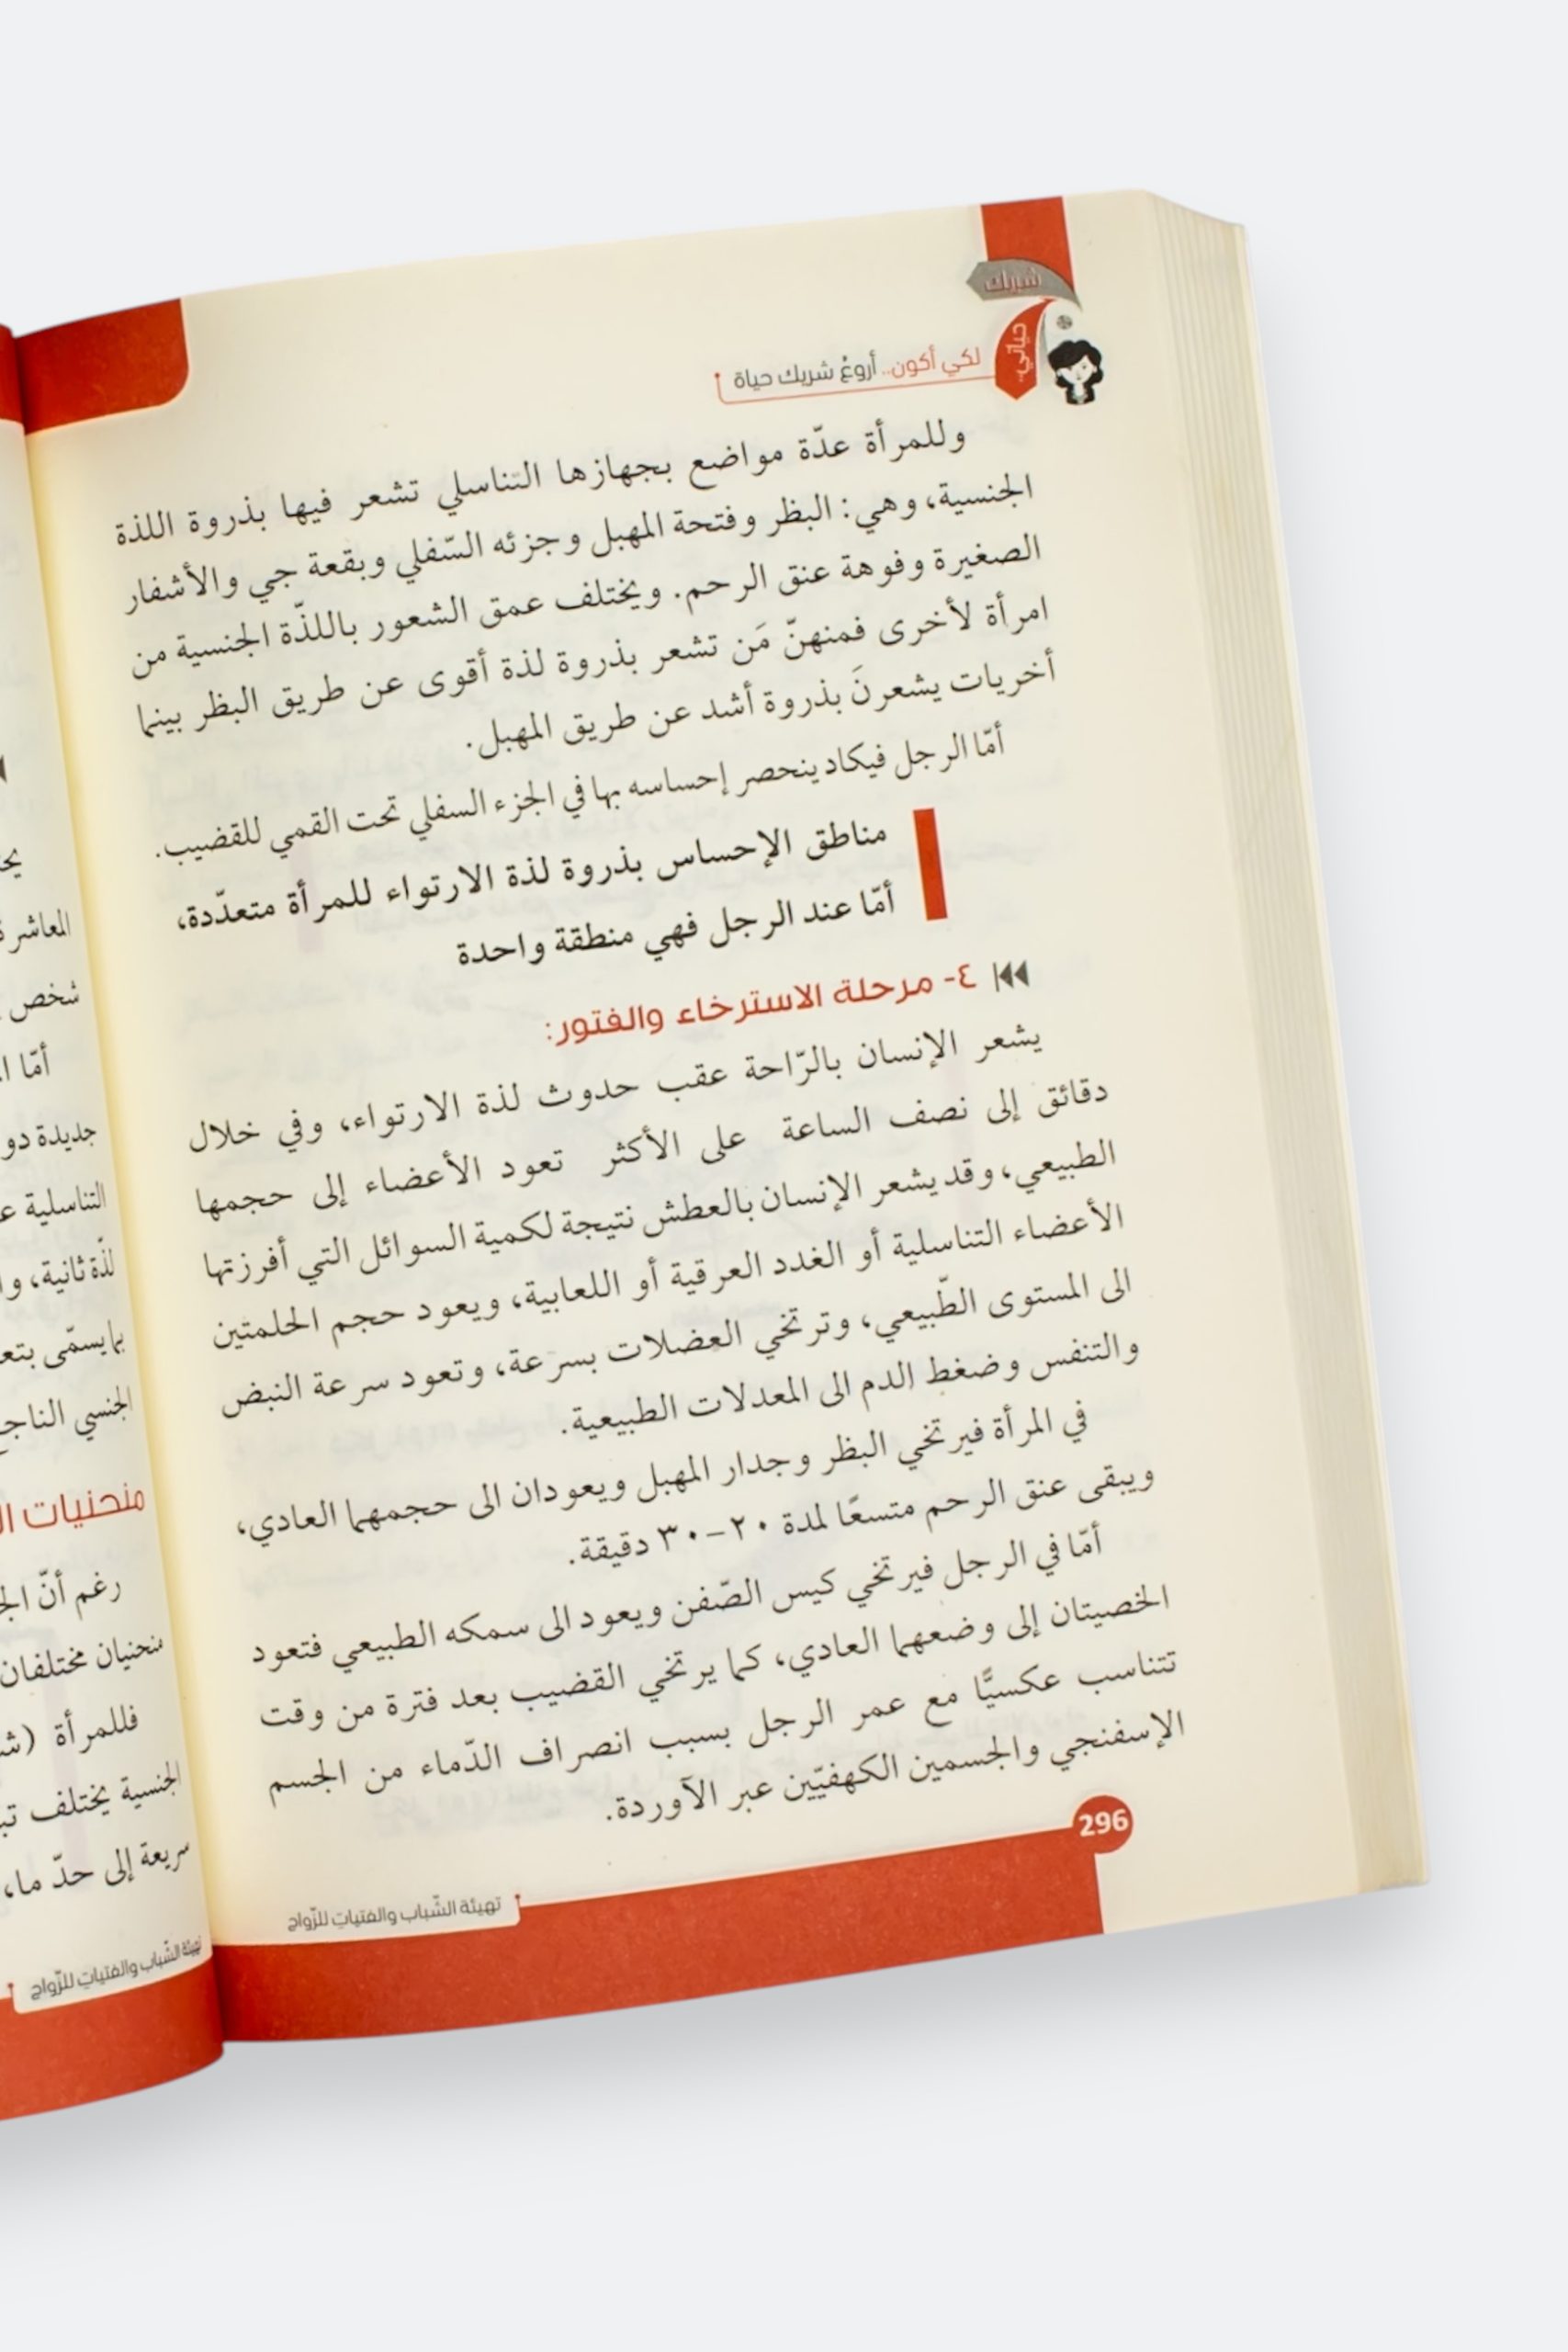 شريك
حياتي..
لكي أكون.. أروعُ شريك حياة
وللمرأة عدّة مواضع بجهازها التناسلي تشعر فيها بذروة اللذة
الجنسية، وهي: البظر وفتحة المهبل وجزئه السّفلي وبقعة جي والأشفار
الصغيرة وفوهة عنق الرحم. ويختلف عمق الشعور باللذّة الجنسية من
امرأة لأخرى فمنهنّ مَن تشعر بذروة لذة أقوى عن طريق البظر بينما
أخريات يشعرنَ بذروة أشد عن طريق المهبل.
أمّا الرجل فيكاد ينحصر إحساسه بها في الجزء السفلي تحت القمي للقضيب.
مناطق الإحساس بذروة لذة الارتواء للمرأة متعدّدة،
أمّا عند الرجل فهي منطقة واحدة
٤- مرحلة الاسترخاء والفتور:
يشعر الإنسان بالرّاحة عقب حدوث لذة الارتواء، وفي خلال
دقائق إلى نصف الساعة على الأكثر تعود الأعضاء إلى حجمها
الطبيعي، وقد يشعر الإنسان بالعطش نتيجة لكمية السوائل التي أفرزتها
الأعضاء التناسلية أو الغدد العرقية أو اللعابية، ويعود حجم الحلمتين
الى المستوى الطّبيعي، وترتخي العضلات بسرعة، وتعود سرعة النبض
والتنفس وضغط الدم الى المعدلات الطبيعية.
في المرأة فيرتخي البظر وجدار المهبل ويعودان الى حجمهما العادي،
ويبقى عنق الرحم متسعًا لمدة ٢٠-٣٠ دقيقة.
أمّا في الرجل فيرتخي كيس الصّفن ويعود الى سمكه الطبيعي فتعود
الخصيتان إلى وضعهما العادي، كما يرتخي القضيب بعد فترة من وقت
تتناسب عكسيًّا مع عمر الرجل بسبب انصراف الدّماء من الجسم
الإسفنجي والجسمين الكهفيّين عبر الآوردة.
296
تهيئة الشّباب والفتيات للزّواج
المعاشرة
شخص
أمّا
جديدة
التناسلية
لذّة ثانية،
بما يسمّى
الجنسي
منحنيات
رغم أنّ
منحنيان مختلفان
فللمرأة
الجنسية يختلف
سريعة إلى حدّ ما،
تهيئة الشّباب والفتيات للزّواج